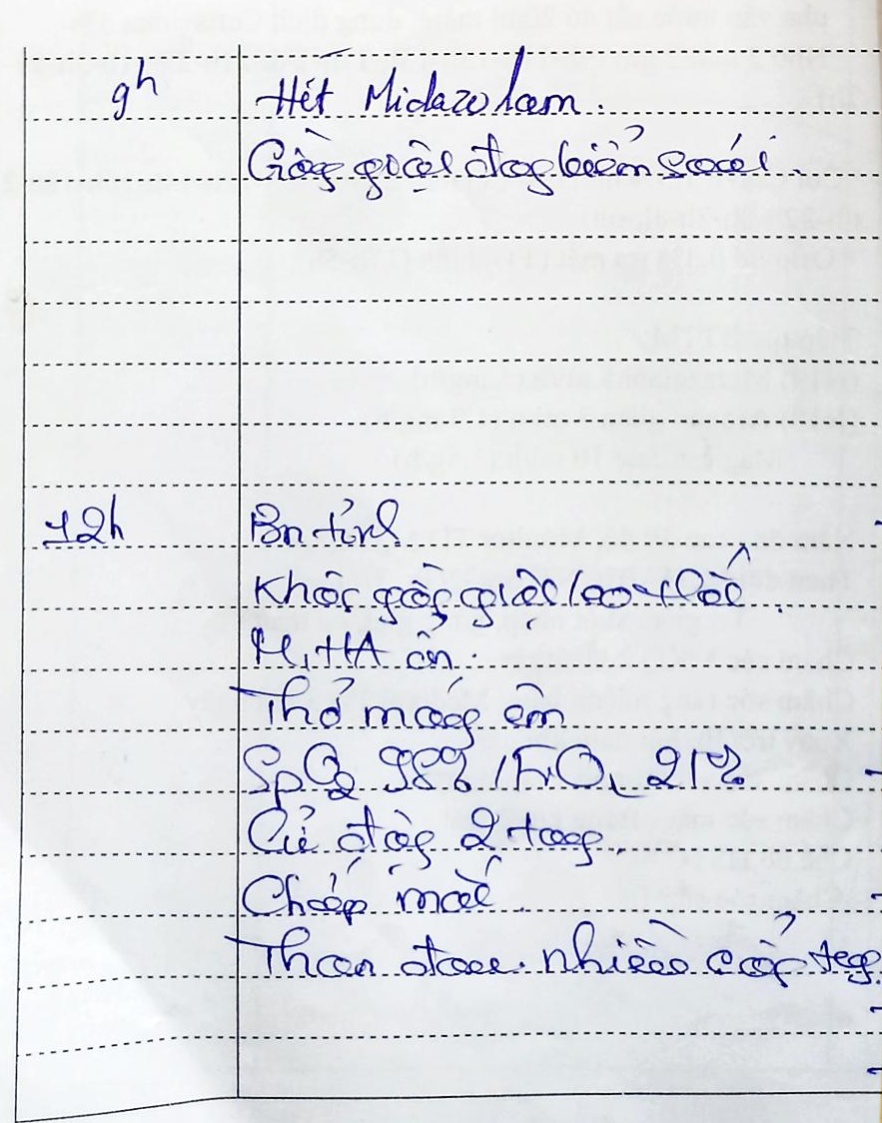 9h Hết Midazolam.
Gồng giật đang kiểm soát.
12h Bn tỉnh
Không gồng giật/co thắt.
M, HA ổn.
Thở máy êm
SpO2 98% / FiO2 21%
Cử động 2 tay.
Chớp mắt.
Than đau nhiều cẳng tay.